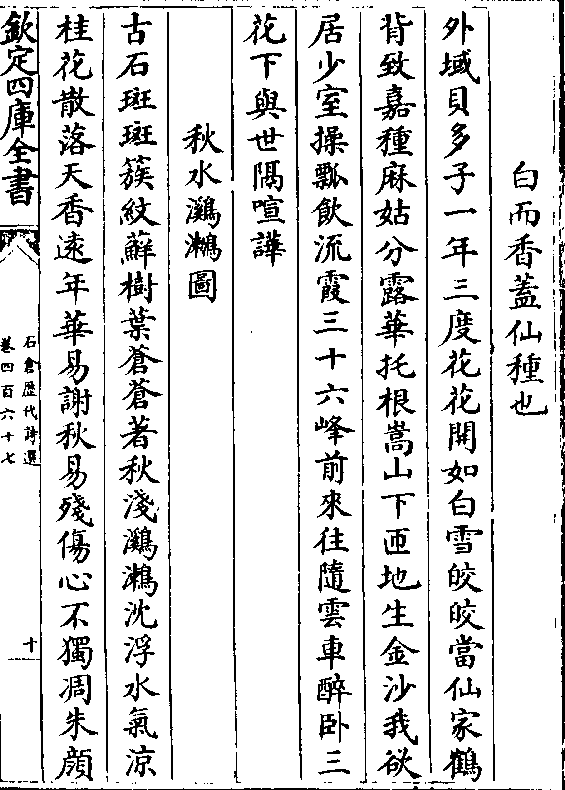 白而香蓋仙種也
外域貝多子一年三度花花開如白雪皎皎當仙家鶴
背致嘉種麻姑分露華托根嵩山下匝地生金沙我欲
居少室操瓢飲流霞三十六峰前來往隨雲車醉卧三
花下與世隔喧譁
秋水鸂鶒圖
古石斑斑蔟紋蘚樹葉蒼蒼著秋淺鸂鶒沈浮水氣涼
桂花散落天香遠年華易謝秋易殘傷心不獨凋朱顔
欽定四庫全書
石倉歴代詩選
卷四百六十七
十